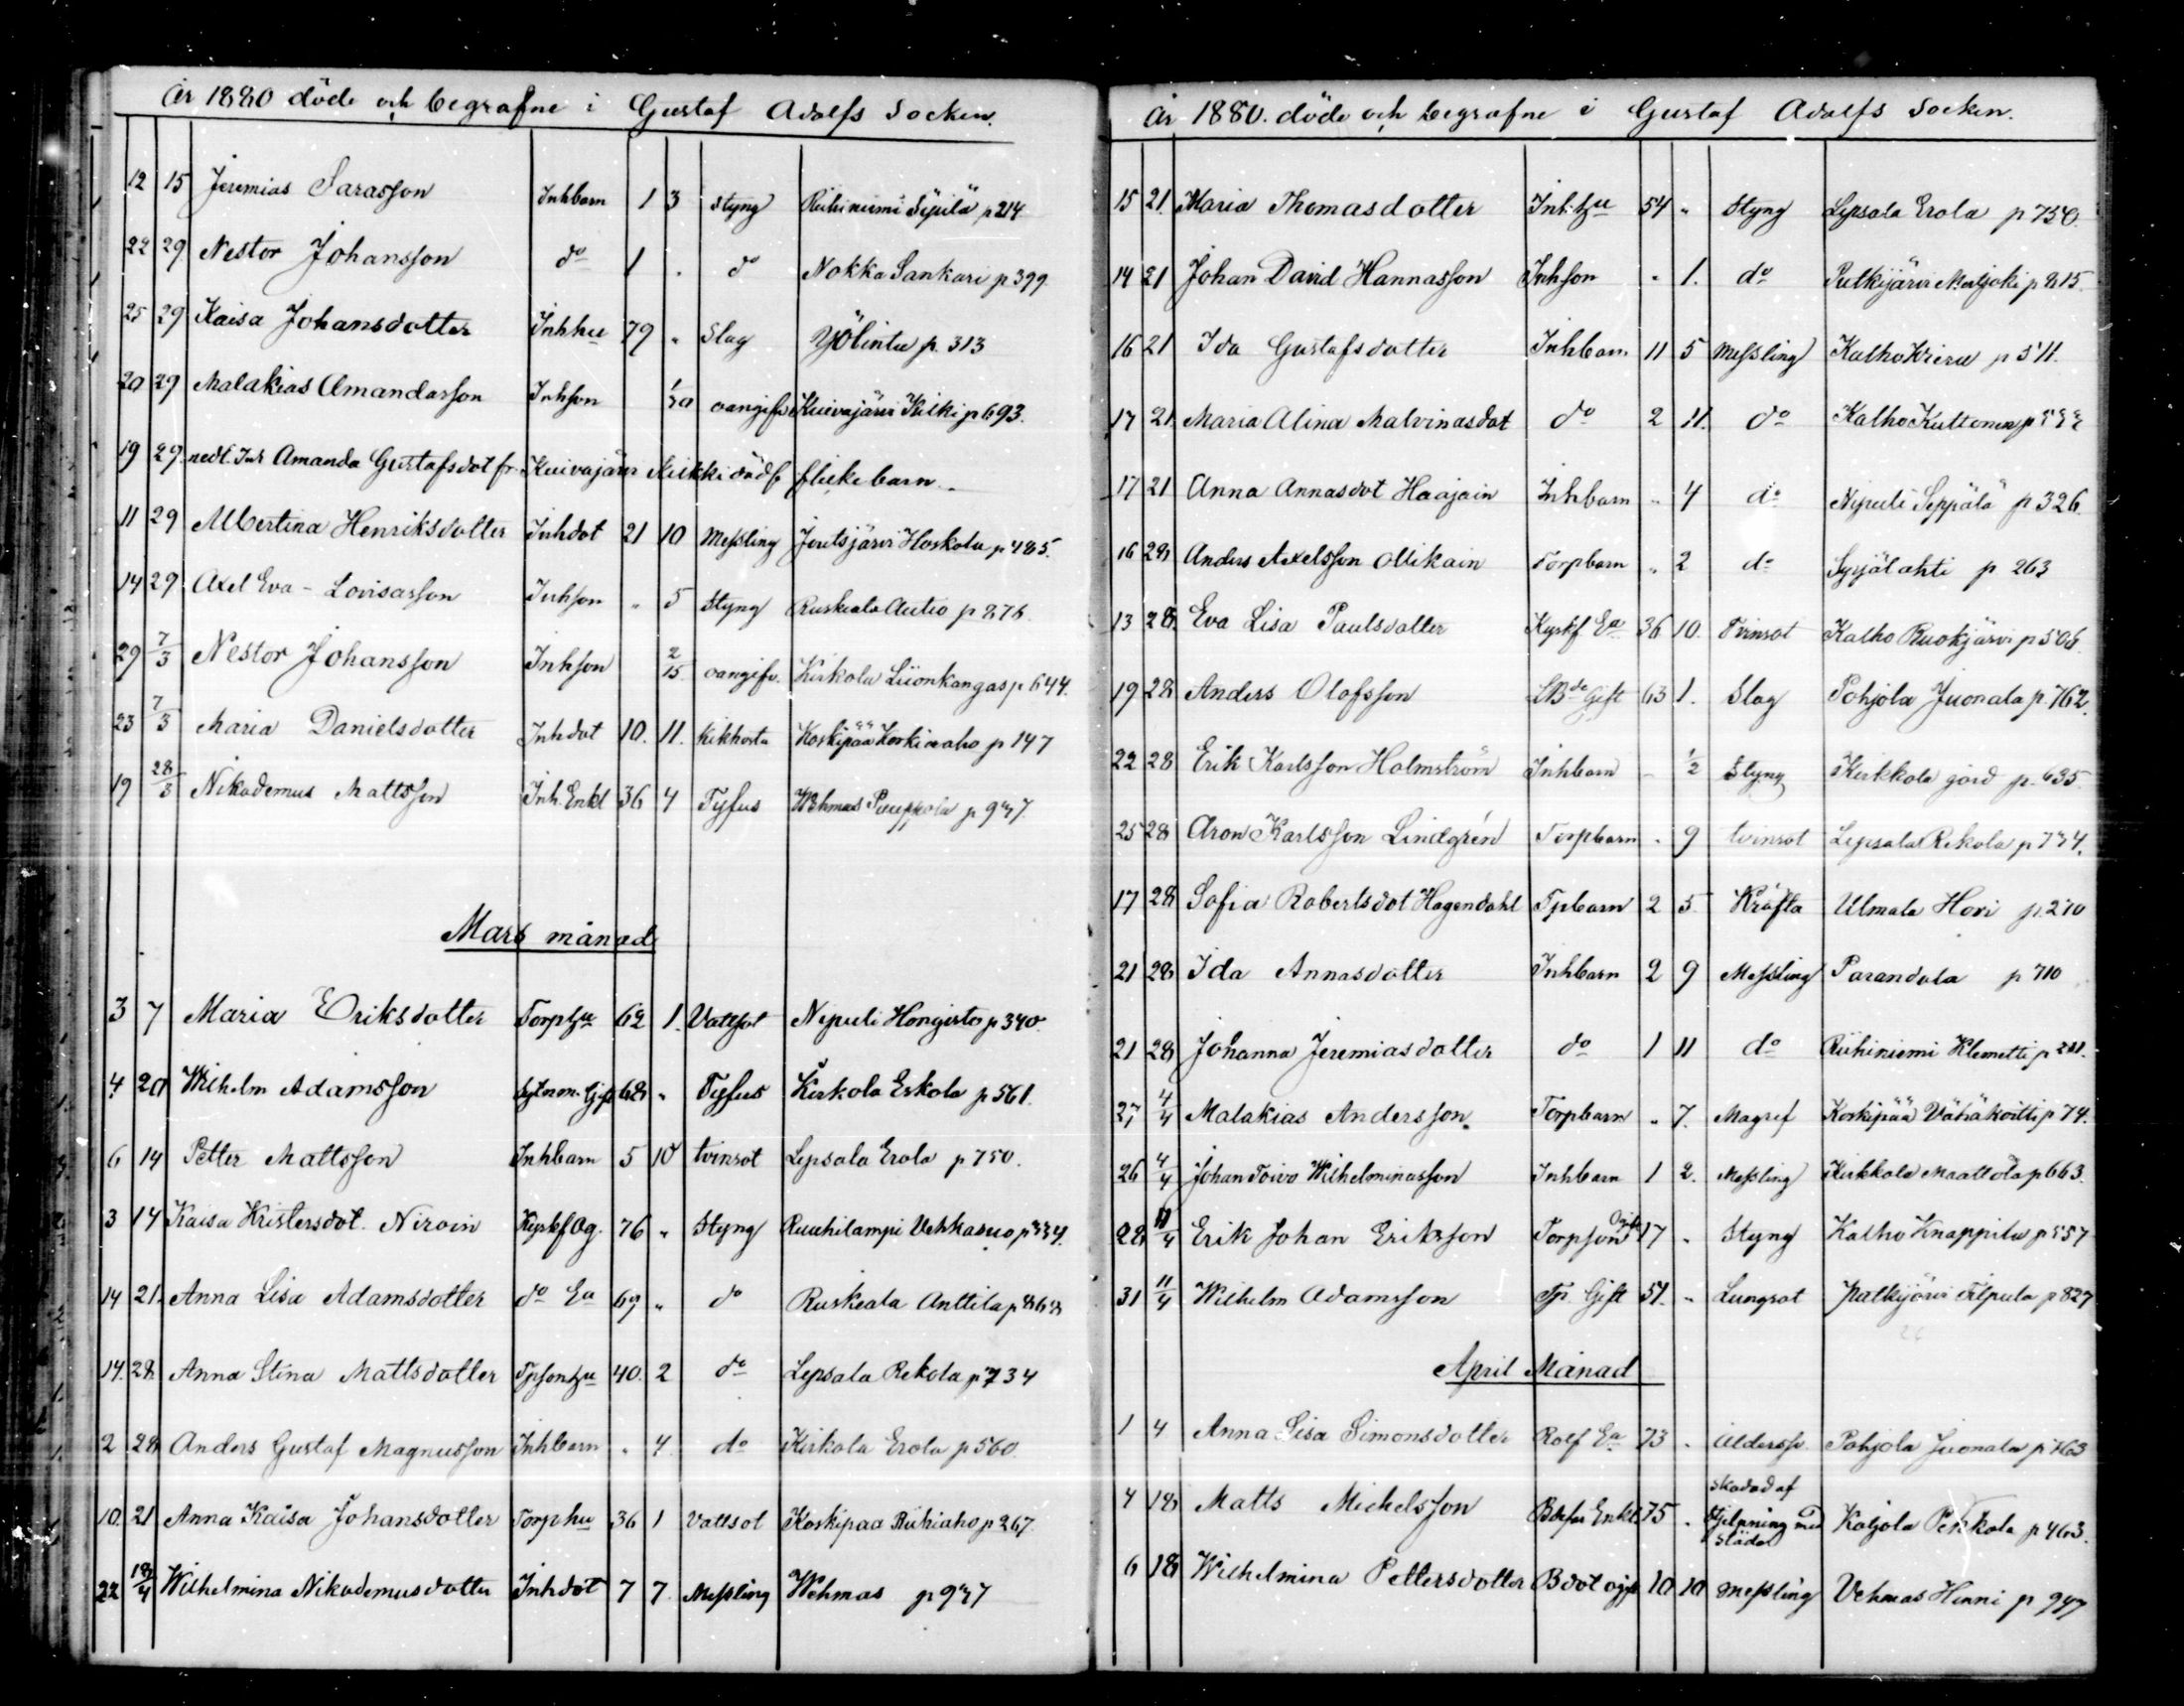 År 1880 döde och begrafne i Gustaf Adolfs Socken.
12 15 Jeremias Sarasson Inhbarn 1 3 styng Riihiniemi Sipilä p 214
22 29 Nestor Johansson do 1 . do Nokka Sankari p 399
25 29 Kaisa Johansdotter Inhhu 79 " Slag Yölintu p. 313
20 29 Malakias Amandasson Inhson 1/30 oangifv Kuivajärvi Kilki p 693.
19 29 nedk. Inh Amanda Gustafsdot fr. Kuivajärvi dödf flickebarn.
11 29 Albertina Henriksdotter Inhdot 21 10 Messling Joutsjärvi Koskola p 485.
14 29 Axel Eva-Lovisasson Inhson " 5 Styng Ruskeala Autio p 876
29 7/3 Nestor Johansson Inhson 2/15 oangifv. Kirkola Liionkangas p 644.
23 7/3 Maria Danielsdotter Inhdot 10. 11. kikhosta Koskipää Koskiaho p 147
19 28/3 Nikodemus Mattsson Inh. Enkl 36 4 Tyfus Wehmas Pauppola p 937
Mars månad
3 7 Maria Eriksdotter Torphu 62 1. Vattsot Nipuli Hongisto p 340.
4 20 Wilhelm Adamsson Gift 68 " Tyfus Kirkola Eskola p 561.
6 14 Petter Mattsson Inhbarn 5 10 tvinsot Lepsala Erola p 750.
3 14 Kaisa Kristersdot. Niroin Kyrkf Og. 76 " Styng Ruuhilampi Vehkasuo p 334.
14 21. Anna Lisa Adamsdotter do Ea 69 " do Ruskeala Anttila p 868
14. 28. Anna Stina Mattsdotter Tpsonhu 40. 2 do Lepsala Rekola p 734
2 28 Anders Gustaf Magnusson Inhbarn " 4. do Kirkola Erola p 560.
10. 21 Anna Kaisa Johansdotter Torphu 36 1 Vattsot Koskipaa Riihiaho p 267.
22 18/4 Wilhelmina Nikodemusdotter Inhdot 7 7 Messling Wehmas p 937
År 1880. döde och begrafne i Gustaf Adolfs Socken.
15 21. Maria Thomasdotter Inh.hu 54 " Styng Lepsala Erola p 750.
14 21 Johan David Hannasson Inhson " 1. do Putkijärvi p 815.
16 21 Ida Gustafsdotter Inhbarn 11 5 Messling Kalho p 511.
17 21. Maria Alina Malvinasdot do 2 11. do Kalho Kuttonen p 533
17 21 Anna Annasdot Haajain Inhbarn " 4 do Nipuli Seppälä p 326.
16 28 Anders Axelsson Ollikain Torpbarn " 2 do Syrjälahti p 263
13 28. Eva Lisa Paulsdotter Kyrkf Ea 36 10. Tvinsot Kalho Ruokjärvi p 506.
19 28 Anders Olofsson Gift 63 1. Slag Pohjola Juonala p. 762.
22 28 Erik Karlsson Holmström Inhbarn - 1/2 Styng Kirkkola gård p. 635
25 28 Aron Karlsson Lindgrén Torpbarn " 9 tvinsot Lepsala Rekola p 734.
17 28 Sofia Robertsdot Hagendahl Tpbarn 2 5 Kräfta Ulmala Hovi p. 210
21 28 Ida Annasdotter Inhbarn 2 9 Messling Parandala p 710
21 28 Johanna Jeremiasdotter do 1 11 do Riihiniemi Klemetti p 211.
27 4/4 Malakias Andersson. Torpbarn " 7. Magref Koskipää Vähäkoitti p 74.
26 4/4 Johan Toivo Wilhelminasson Inhbarn 1 2. Messling Kirkkola Maattola p 663.
28 11/4 Erik Johan Eriksson Torpson Ogift 17 " Styng Kalho Knappila p 557
31 11/4 Wilhelm Adamsson Tp. Gift 51. " Lungsot Putkijärvi Tilpula p 827
April Månad
1 4 Anna Lisa Simonsdotter Rolf Ea 73 . åldersv. Pohjola Juonala p 763
4 18 Matts Michelsson Enkl 75 . skadad af stjelpning med släda Koljola Pekkola p 463.
6 18 Wilhelmina Pettersdotter Bdot ogft 10 10 messling Vehmas Hinni p 947